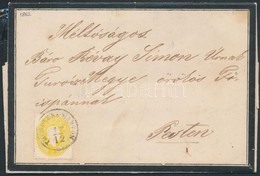 1862.
Méltóságos
Báró Révay Simon Urnak
Turócz Megye örökös Fő
ispánnak
Pesten